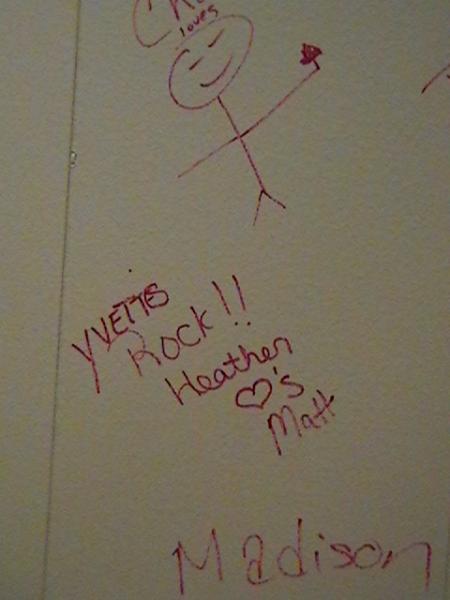 loves
YVETTES
Rock!!
Heather
♡'s
Matt
Madison